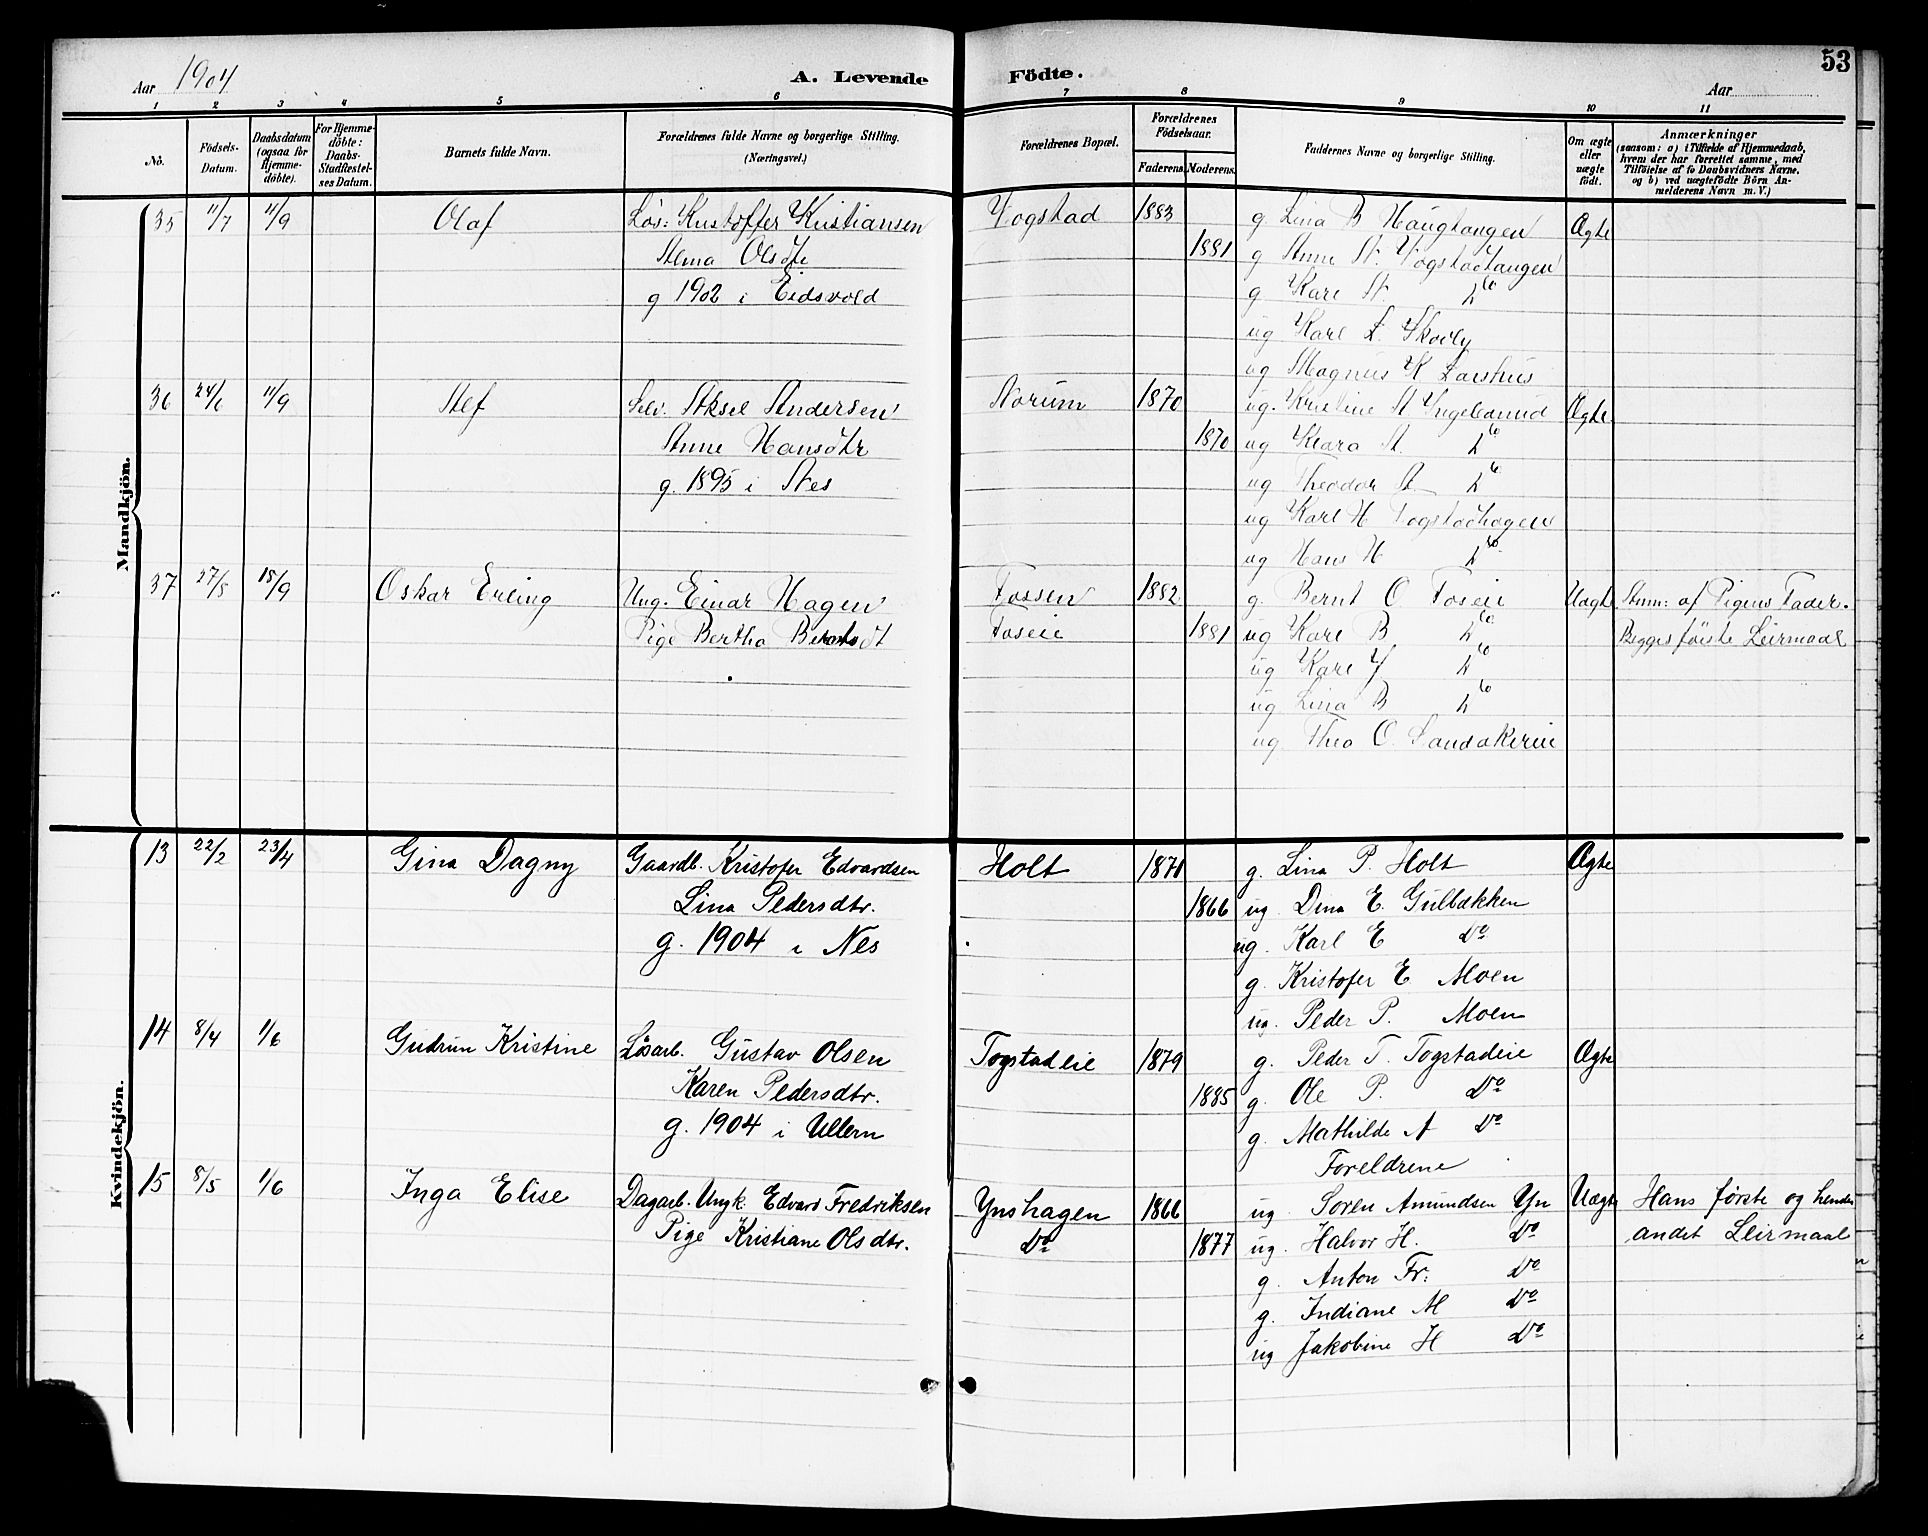 53
Aar 1904
A. Levende Födte.
Aar
1 2 3 4 5 6 7 8 9 10 11
No.
Födsels-Datum.
Daabsdatum (ogsaa for Hjemme-döbte).
For Hjemme-döbte: Daabs-Stadfestel-ses Datum.
Barnets fulde Navn.
Forældrenes fulde Navne og borgerlige Stilling. (Næringsvei.)
Forældrenes Bopæl.
Forældrenes Födselsaar.
Faderens. Moderens.
Faddernes Navne og borgerlige Stilling.
Om ægte eller uægte födt.
Anmærkninger
(saasom: a) i Tilfælde af Hjemmedaab,
hvem der har forrettet samme, med
Tilföielse af to Daabsvidners Navne.
og b) ved uægtefödte Börn An-
melderens Navn m. V.)
Mandkjön.
35 11/7 11/9 Olaf Lös: Kristoffer Kristiansen Vogstad 1883 g Lina B Haugtangen Ægte
Alma Olsdtr 1881 g Anne A. Vogstadtangen
g 1902 i Eidsvold g. Karl A. Do
ug Karl L. Skoely
ug Magnus K Larshus
36 24/6 11/9 Alf Selv. Aksel Andersen Norum 1870 ug. Kristine A Ingelsrud Ægte
Anne Hansdtr 1870 ug Klara A. Do
g. 1895 i Nes ug Theodor A. Do
ug Karl H Togstadhagen
ug Hans H Do
37 27/8 18/9 Oskar Erling Ung. Einar Hagen Fossen 1882 g. Bernt O Foseie Uægte Anm: af Pigens Fader.
Pige Bertha Berntsdt Foseie 1881 ug Karl B Do Begges förste Leirmaal
ug Karl J Do
ug Lina B Do
ug Thea O. Sandakereie
Kvindekjön.
13 22/2 23/4 Gina Dagny Gaardb. Kristofer Edvardsen Holt 1870 g. Lina P. Holt Ægte
Lina Pedersdtr. 1866 ug. Dina E. Gulbækken
g. 1904 i Nes ug. Karl E Do
g. Kristofer E Moen
ug. Peder P. Moen
14 8/4 1/6 Gudrun Kristine Lösarb. Gustav Olsen Togstadeie 1879 g. Peder T. Togstadeie Ægte
Karen Pedersdtr. 1885 g. Ole P. Do
g. 1904 i Ullern g. Mathilde A Do
Foreldrene
15 8/5 1/6 Inga Elise Dagarb. Ungk. Edvard Fredriksen Ynshagen 1866 ug. Soren Amundsen Yn Uægte Hans förste og hendes
Pige Kristiane Olsdtr. Do 1877 ug. Halvor H. Do andet Leirmaal
g. Anton Fr: Do
g. Indiane M Do
ug Jakobine H Do